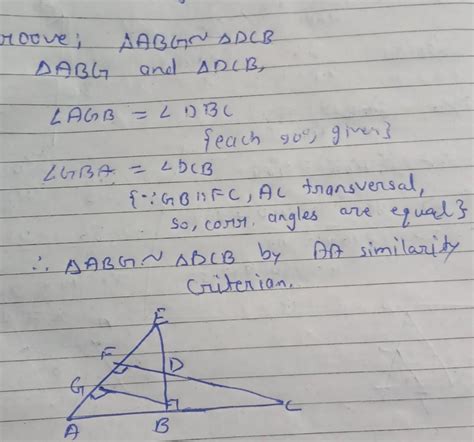 roove; ΔABG ~ ΔDCB
ΔABG and ΔDCB,
∠AGB = ∠DBC
{each 90°, given}
∠GBA = ∠DCB
{∵ GB || FC, AC transversal,
so, corr. angles are equal}
∴ ΔABG ~ ΔDCB by AA similarity
Criterian.
E
F
D
G
A
B
C